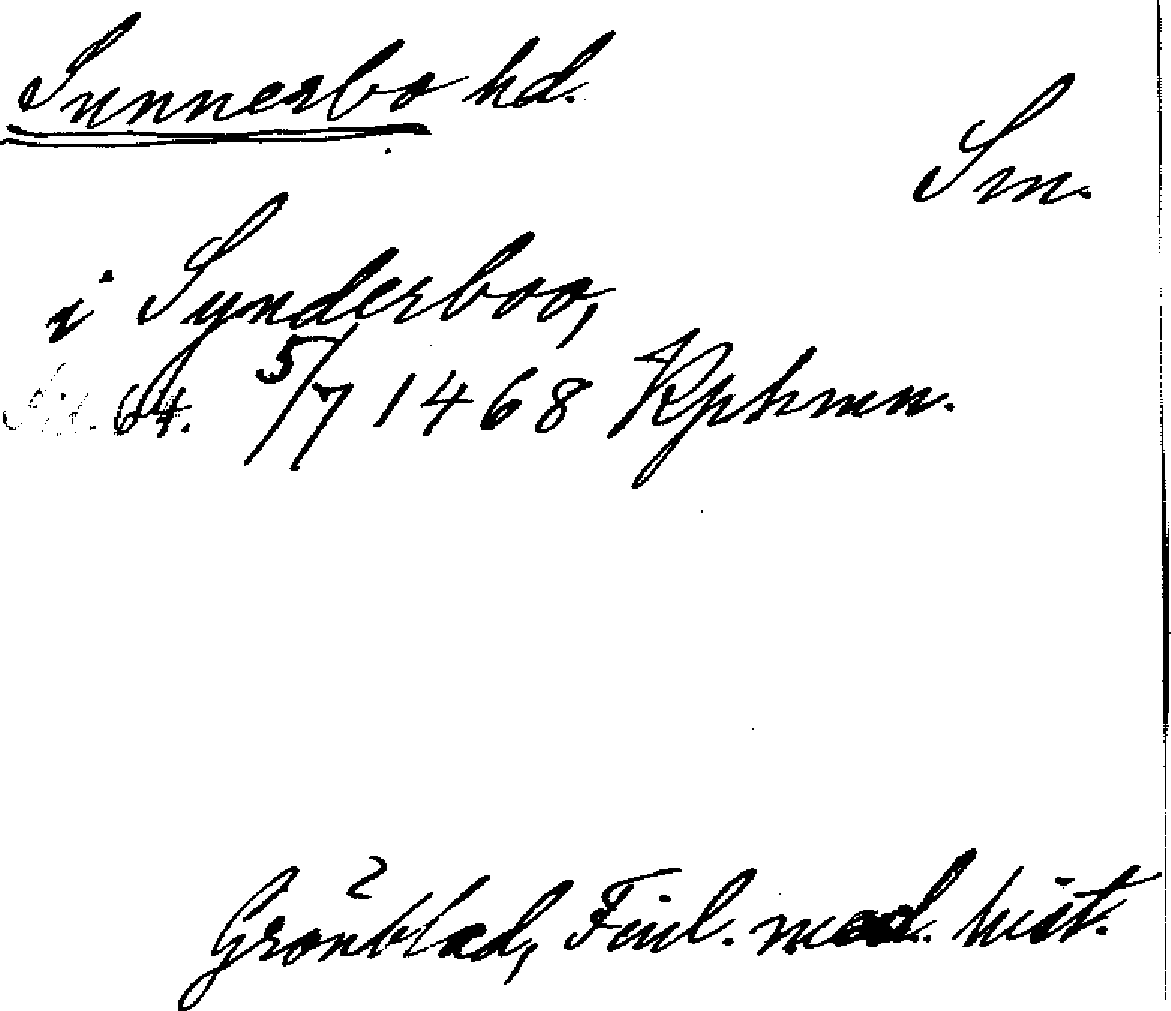 Sunnerbo hd.
Sm.
i Synderboo,
64. 5/7 1468 Kphmn.
Grönblad, Finl. med. hist.